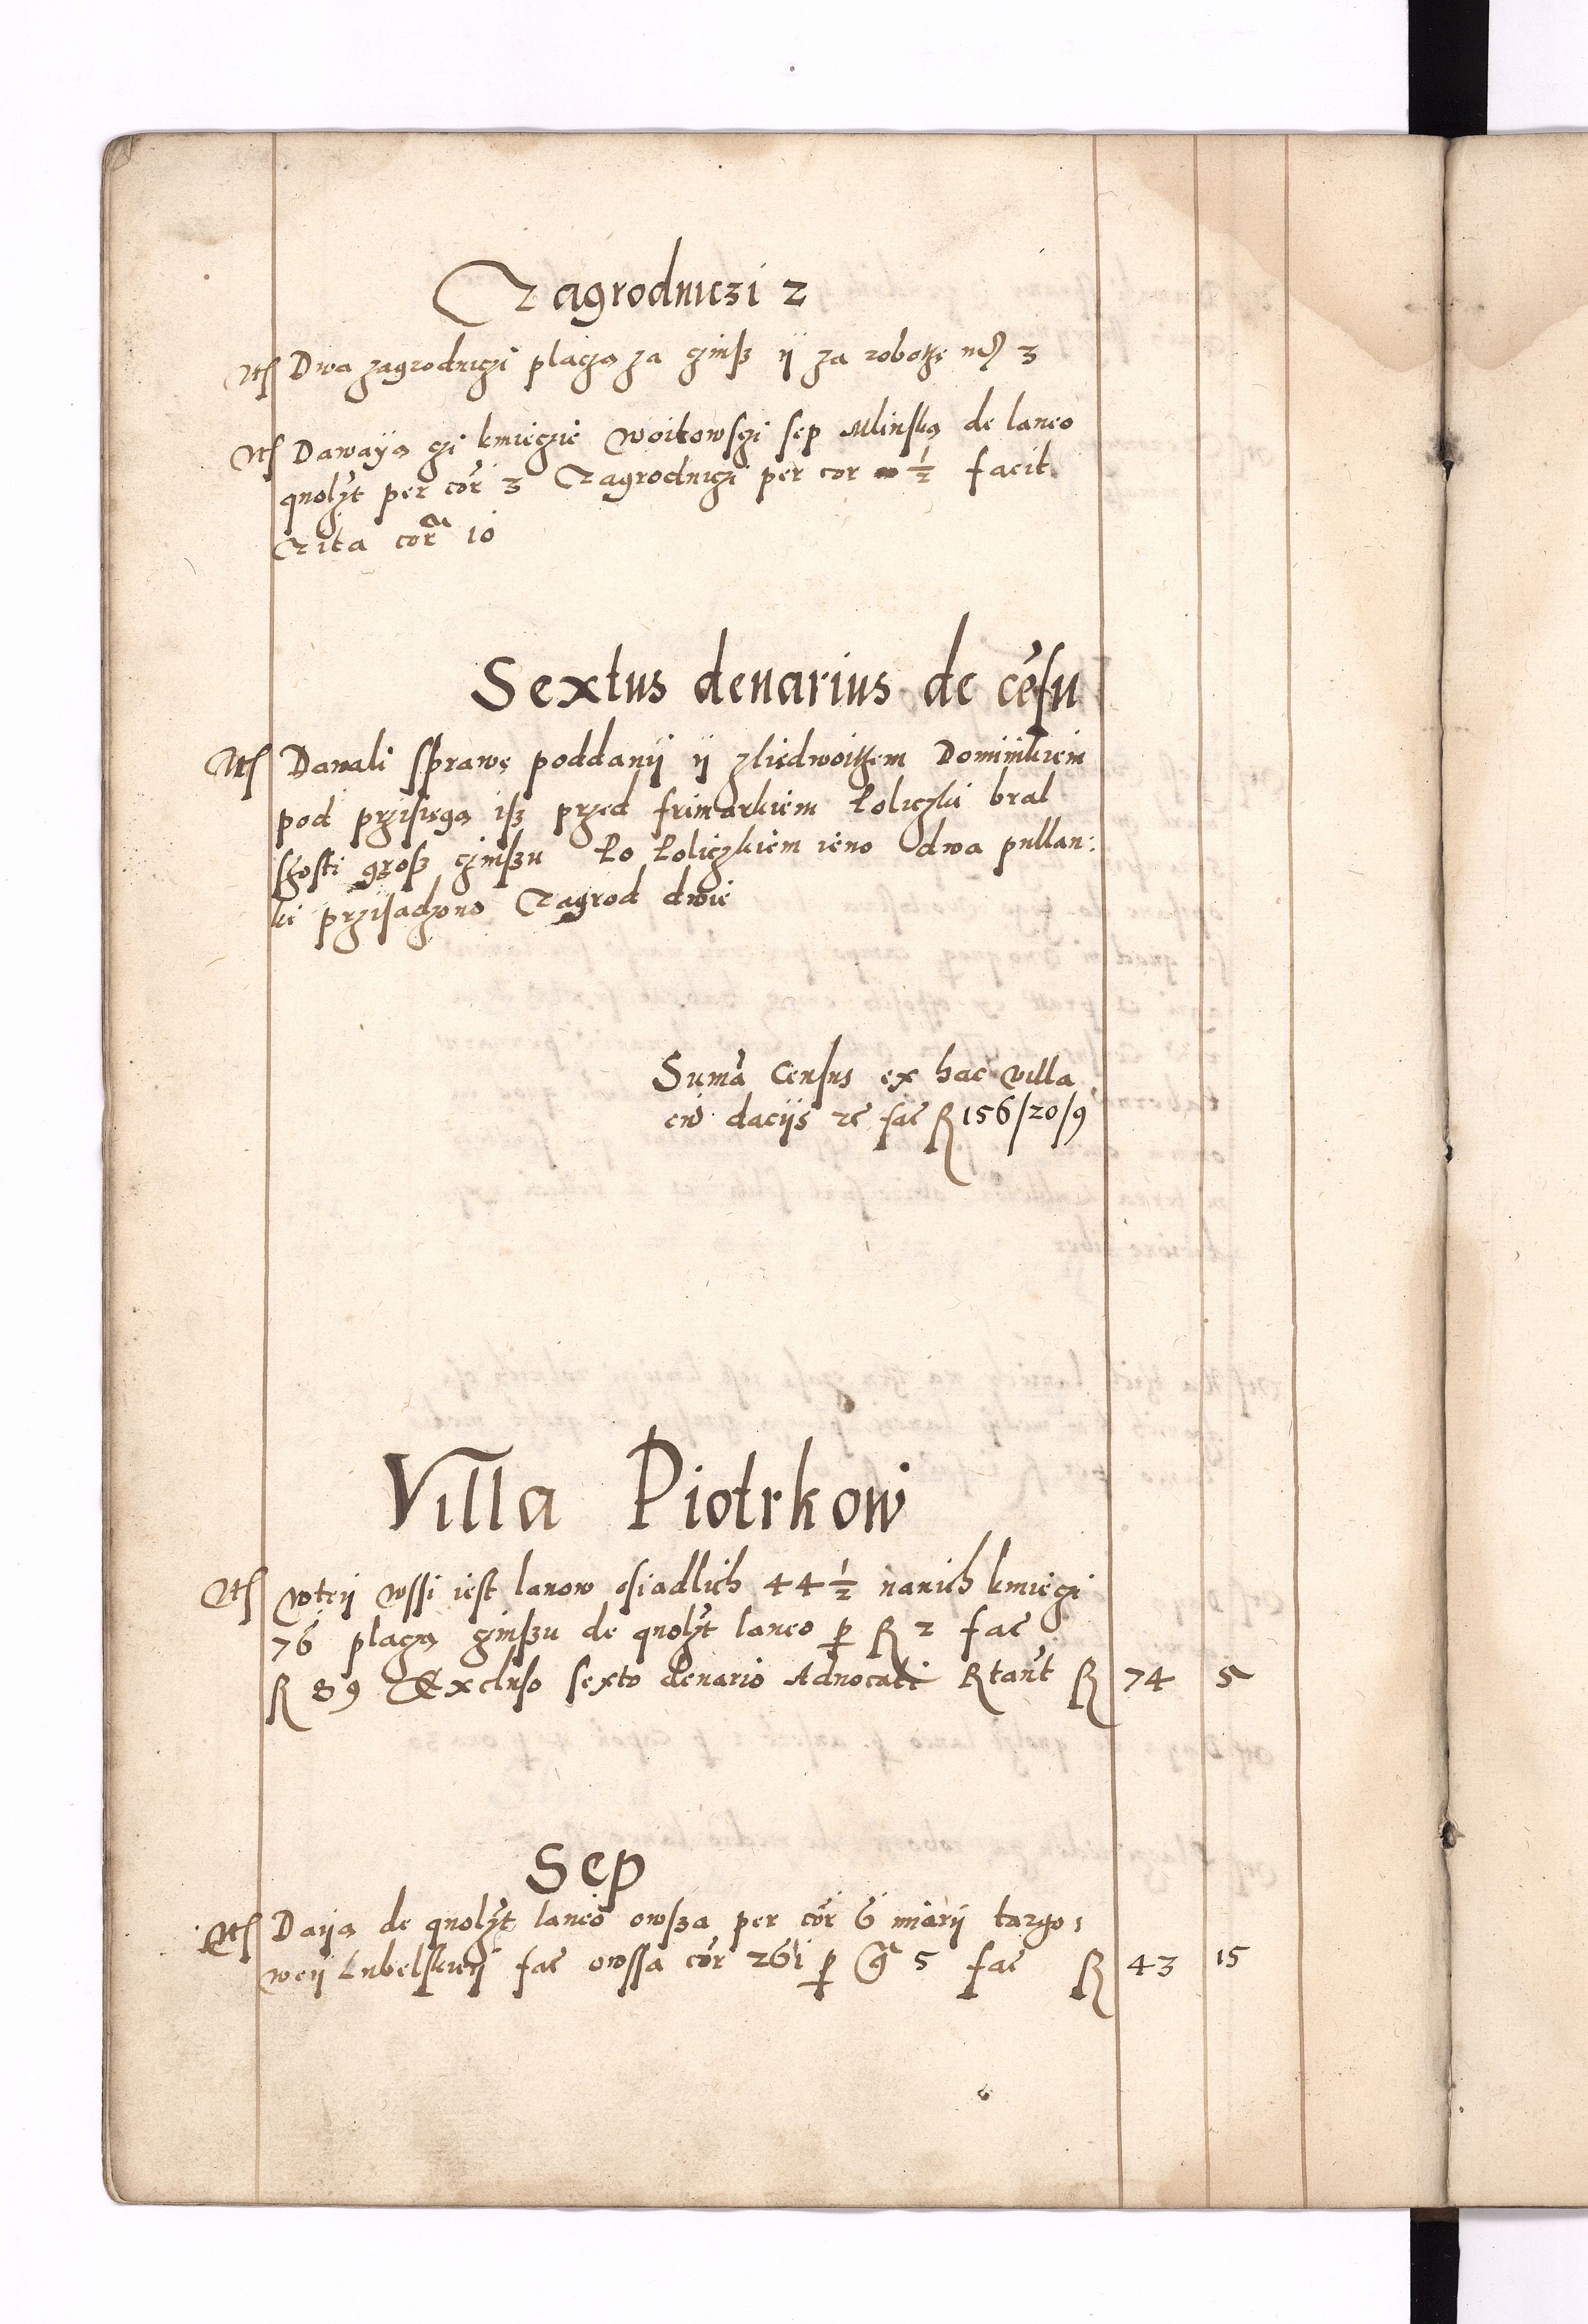 Zagrodniczi 2
Itē Dwa zagrodniczi placzą za czinſz ÿ za robothę 3
Itē Dawaÿą czi kmieczie Woitowſczi ſep Mlinſką de laneo
quolꝫt per cor 3 Zagrodniczi per cor ½ facit
Zita cora 10
Sextus denarius de cēſu
Itē Dawali ſprawę poddanÿ ÿ zliedwoithem Dominikiem
pod prziſięgą iſz przed frimarkiem Łoliczki bral
ſzoſti groſz czinſzu Ło Łoliczkiem ieno dwa pullan:
ki prziſadzono Zagrod dwie
Sumā Cenſus ex hac villa
cū daciis rē fac̄ R 156/20/9
Villa Piotrkow
Itē wteÿ wſſi ieſt lanow oſiadlich 44 ½ nanich kmieczi
76 placzą czinſzu de quolꝫt laneo ꝑ R 2 fac̄
R 89 Excluſo ſexto denario Aduocati Rtant R 74 5
Sep
Itē Daÿą de quolꝫt laneo owſza per cor 6 miarÿ targo:
weÿ Lubelſkieÿ fac̄ owſſa cor 261 ꝑ g̃ 5 fac̄ R 43 15